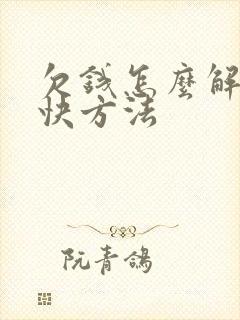 欠錢怎麼解
快方法
阮青鴿